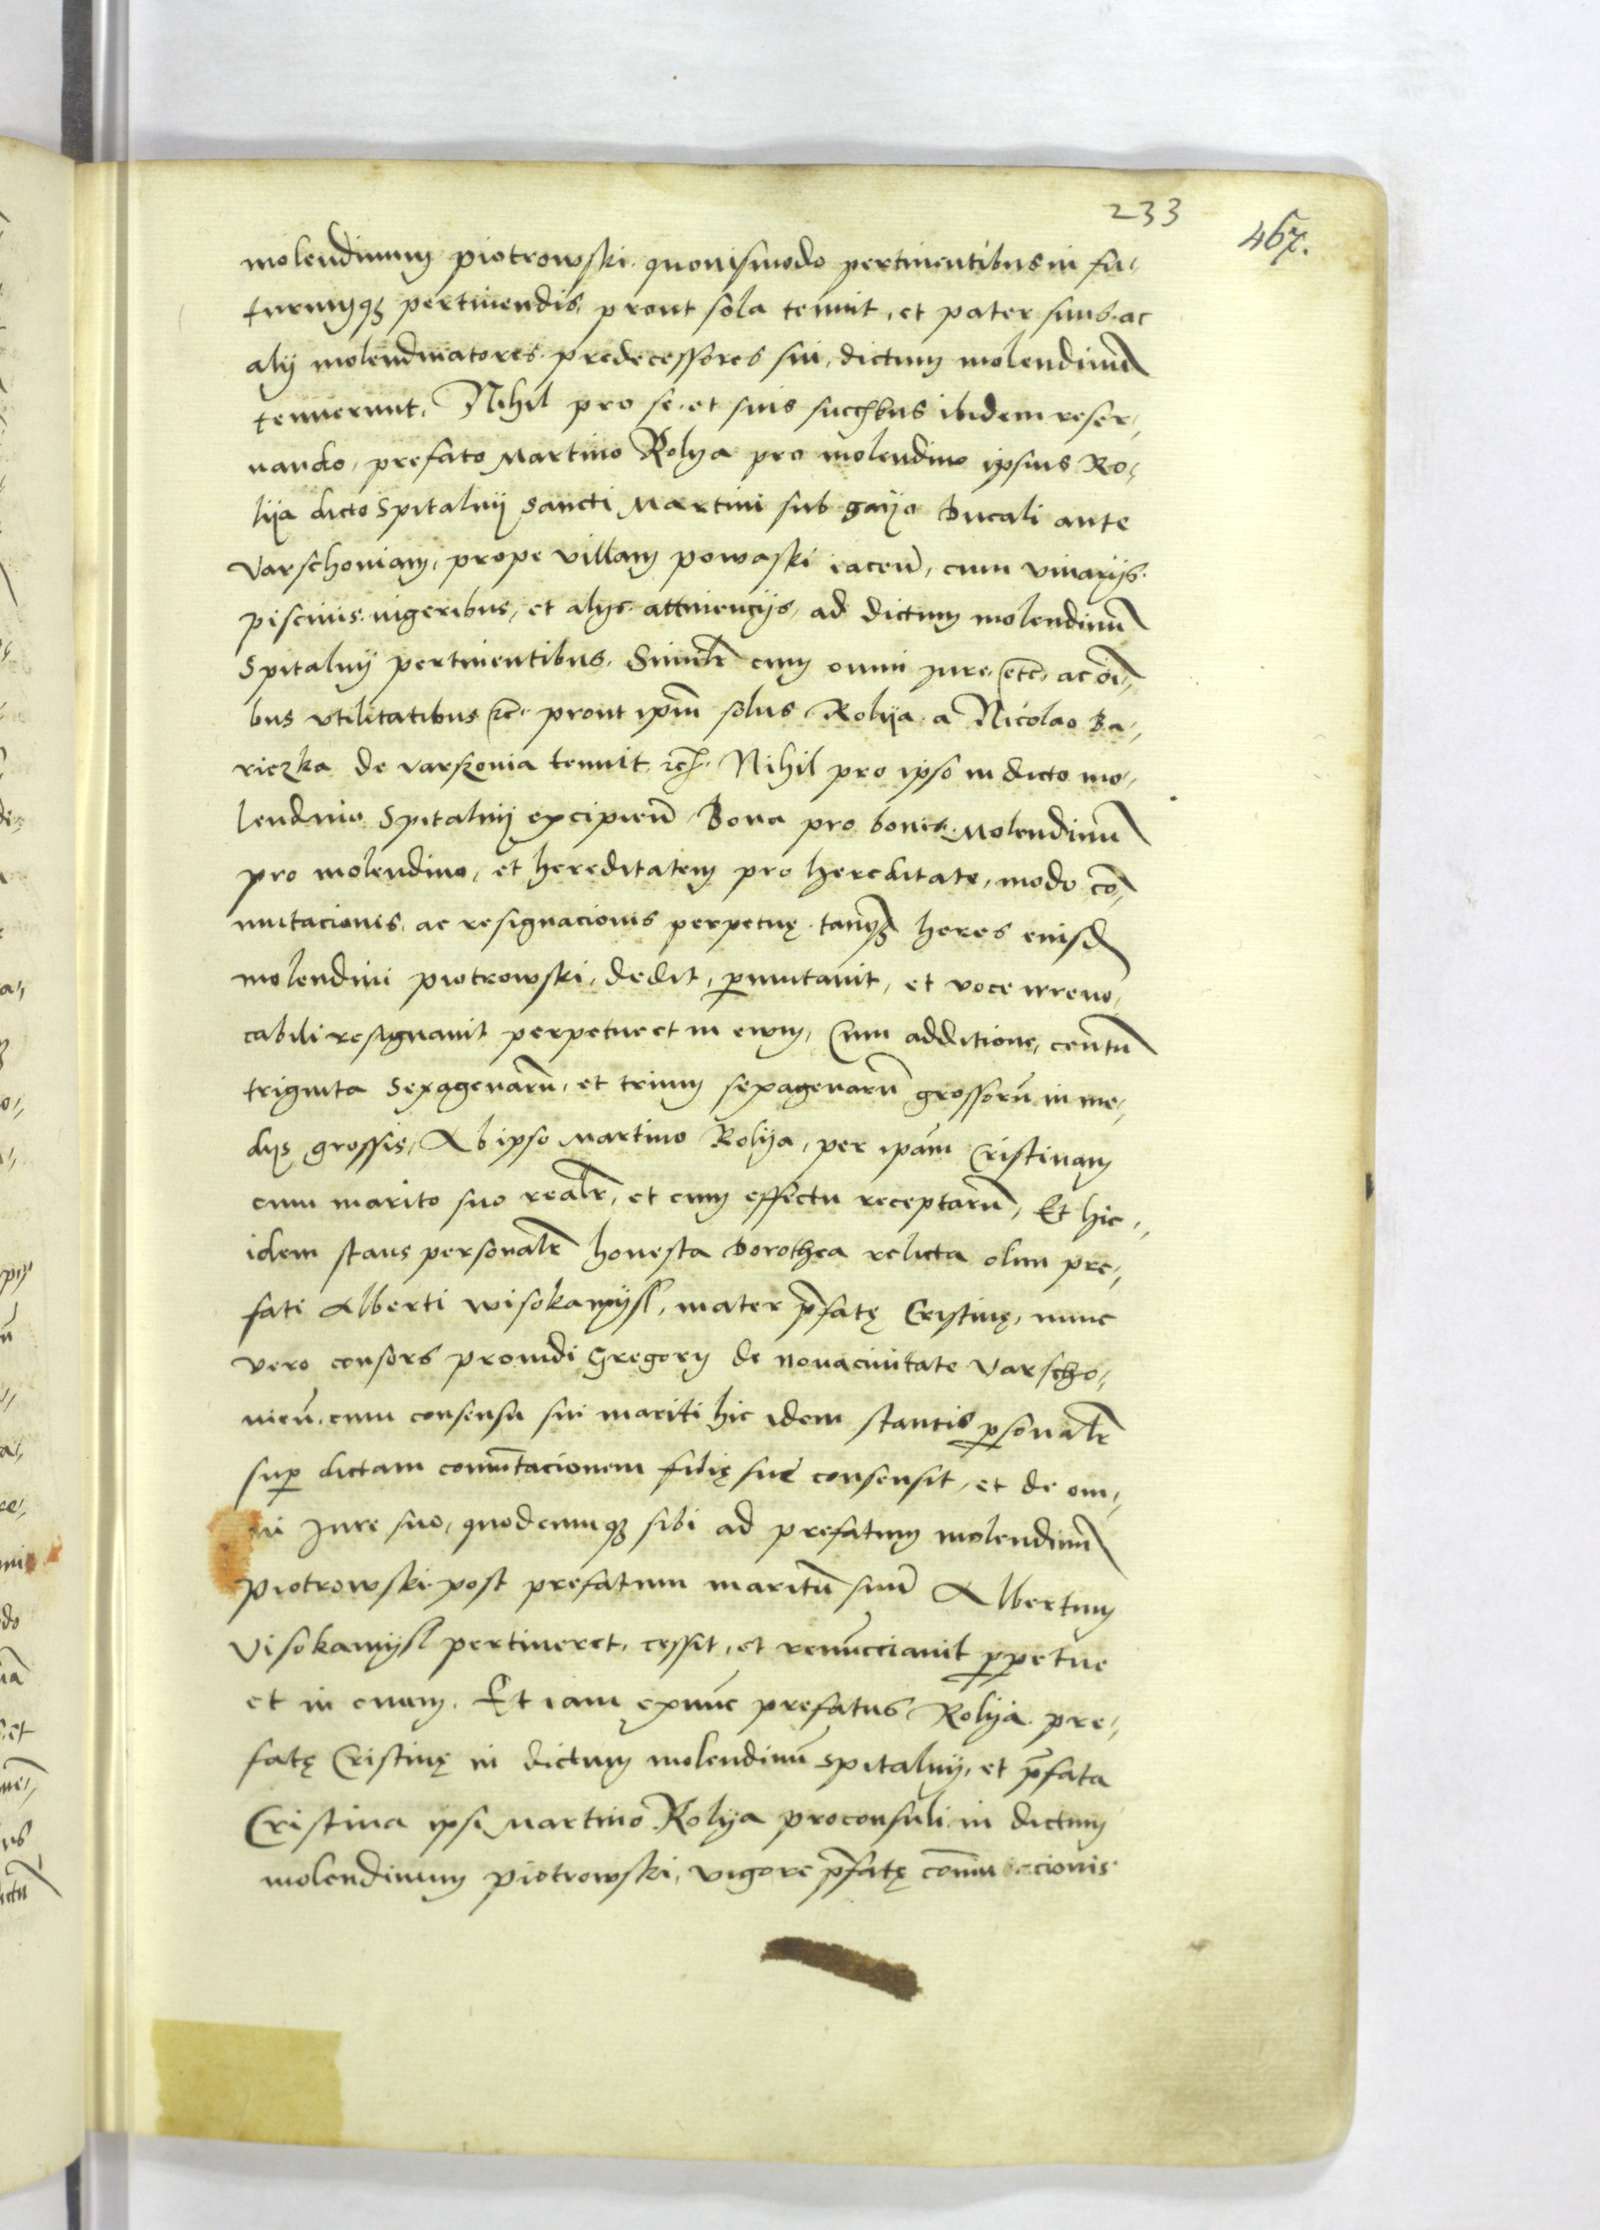 233
467.
molendinum piotrowski quouismodo pertinentibus in fu-
turumqꝫ pertinendis, prout sola tenuit, et pater suus ac
alij molendinatores predecessores sui, dictum molendinū
tenuerunt, Nihil pro se et suis succ̄bus ibidem reser-
uando, prefato Martino Rolya pro molendino ipsius Ro-
lija dicto Spitalnij sancti Martini sub gayo Ducali ante
Varschouiam, prope villam powaski iaceñ, cum viuarijs
piscinis vigeribus, et alijs attinencijs, ad dictum molendinū
Spitalnij pertinentibus. Similr̄ cum omni jure etc̄ ac oī-
bus vtilitatibus etc̄ prout ipm̄ solus Rolija a Nicolao Ba-
riczka de varszouia tenuit etc̄. Nihil pro ipso in dicto mo-
lendino Spitalnij excipieñ Bona pro bonis, Molendinū
pro molendino, et hereditatem pro hereditate, modo cō-
mutacionis ac resignacionis perpetuę tanqꝫ heres eiusd̄
molendini piotrowski, dedit, ꝑmutauit, et voce irreuo-
cabili resignauit perpetue et in ewm, Cum additione, centū
triginta Sexagenarū, et trium sexagenarū grossorū in me-
dijs grossis, Ab ipso Martino Rolija, per ipām Cristinam
cum marito suo realr̄, et cum effectu receptarū, Et hic
idem stans personalr̄ honesta Dorothea relicta olim pre-
fati Alberti wisokamijsl, mater p̄fatę Cristinę, nunc
vero consors prouidi Gregorij de nouaciuitate Varscho-
uieñ, cum consensu sui mariti hic idem stantis ꝑsonalr̄
suꝑ dictam com̄utacionem filię suę consensit, et de om-
ni jure suo, quodcumqꝫ sibi ad prefatum molendinū
piotrowski post prefatum maritū suū Albertum
Visokamijsl pertineret, cessit, et renūcciauit ꝑpetue
et in euum. Et iam exnunc prefatus Rolija pre-
fatę Cristinę in dictum molendinū Spitalnij, et p̄fata
Cristina ipsi Martino Rolija proconsuli in dictum
molendinum piotrowski, vigore p̄fatę com̄utacionis